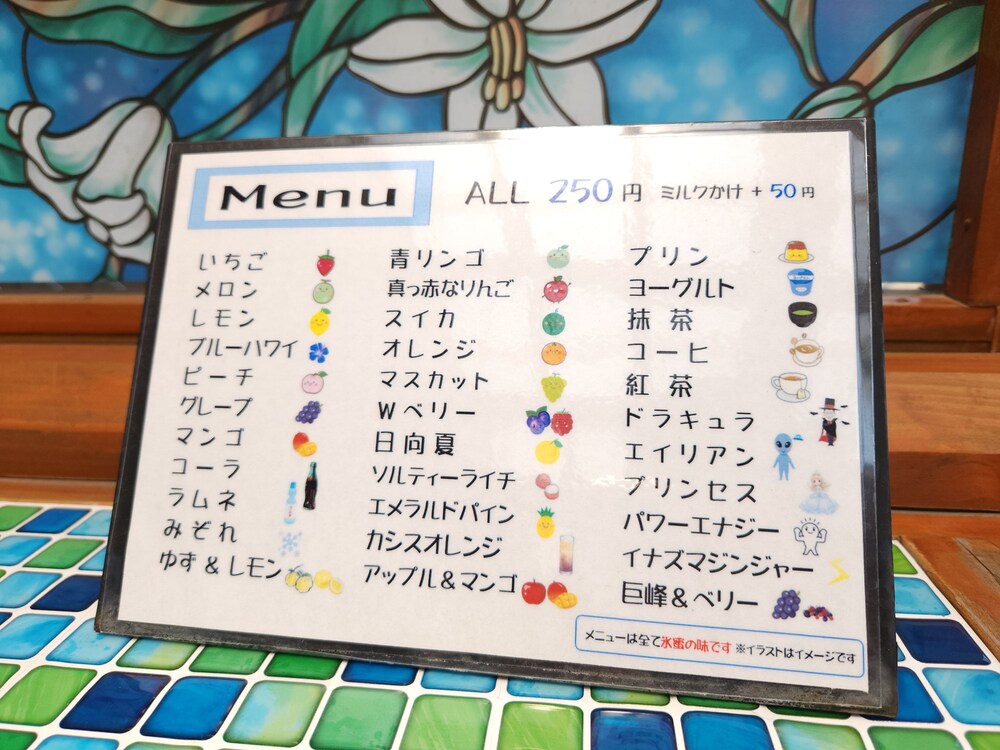 Menu
ALL 250円 ミルクかけ + 50円
いちご
メロン
レモン
ブルーハワイ
ピーチ
グレープ
マンゴ
コーラ
ラムネ
みぞれ
ゆず&レモン
青リンゴ
真っ赤なりんご
スイカ
オレンジ
マスカット
Wベリー
日向夏
ソルティーライチ
エメラルドパイン
カシスオレンジ
アップル&マンゴ
プリン
ヨーグルト
抹茶
コーヒ
紅茶
ドラキュラ
エイリアン
プリンセス
パワーエナジー
イナズマジンジャー
巨峰&ベリー
メニューは全て氷蜜の味です ※イラストはイメージです